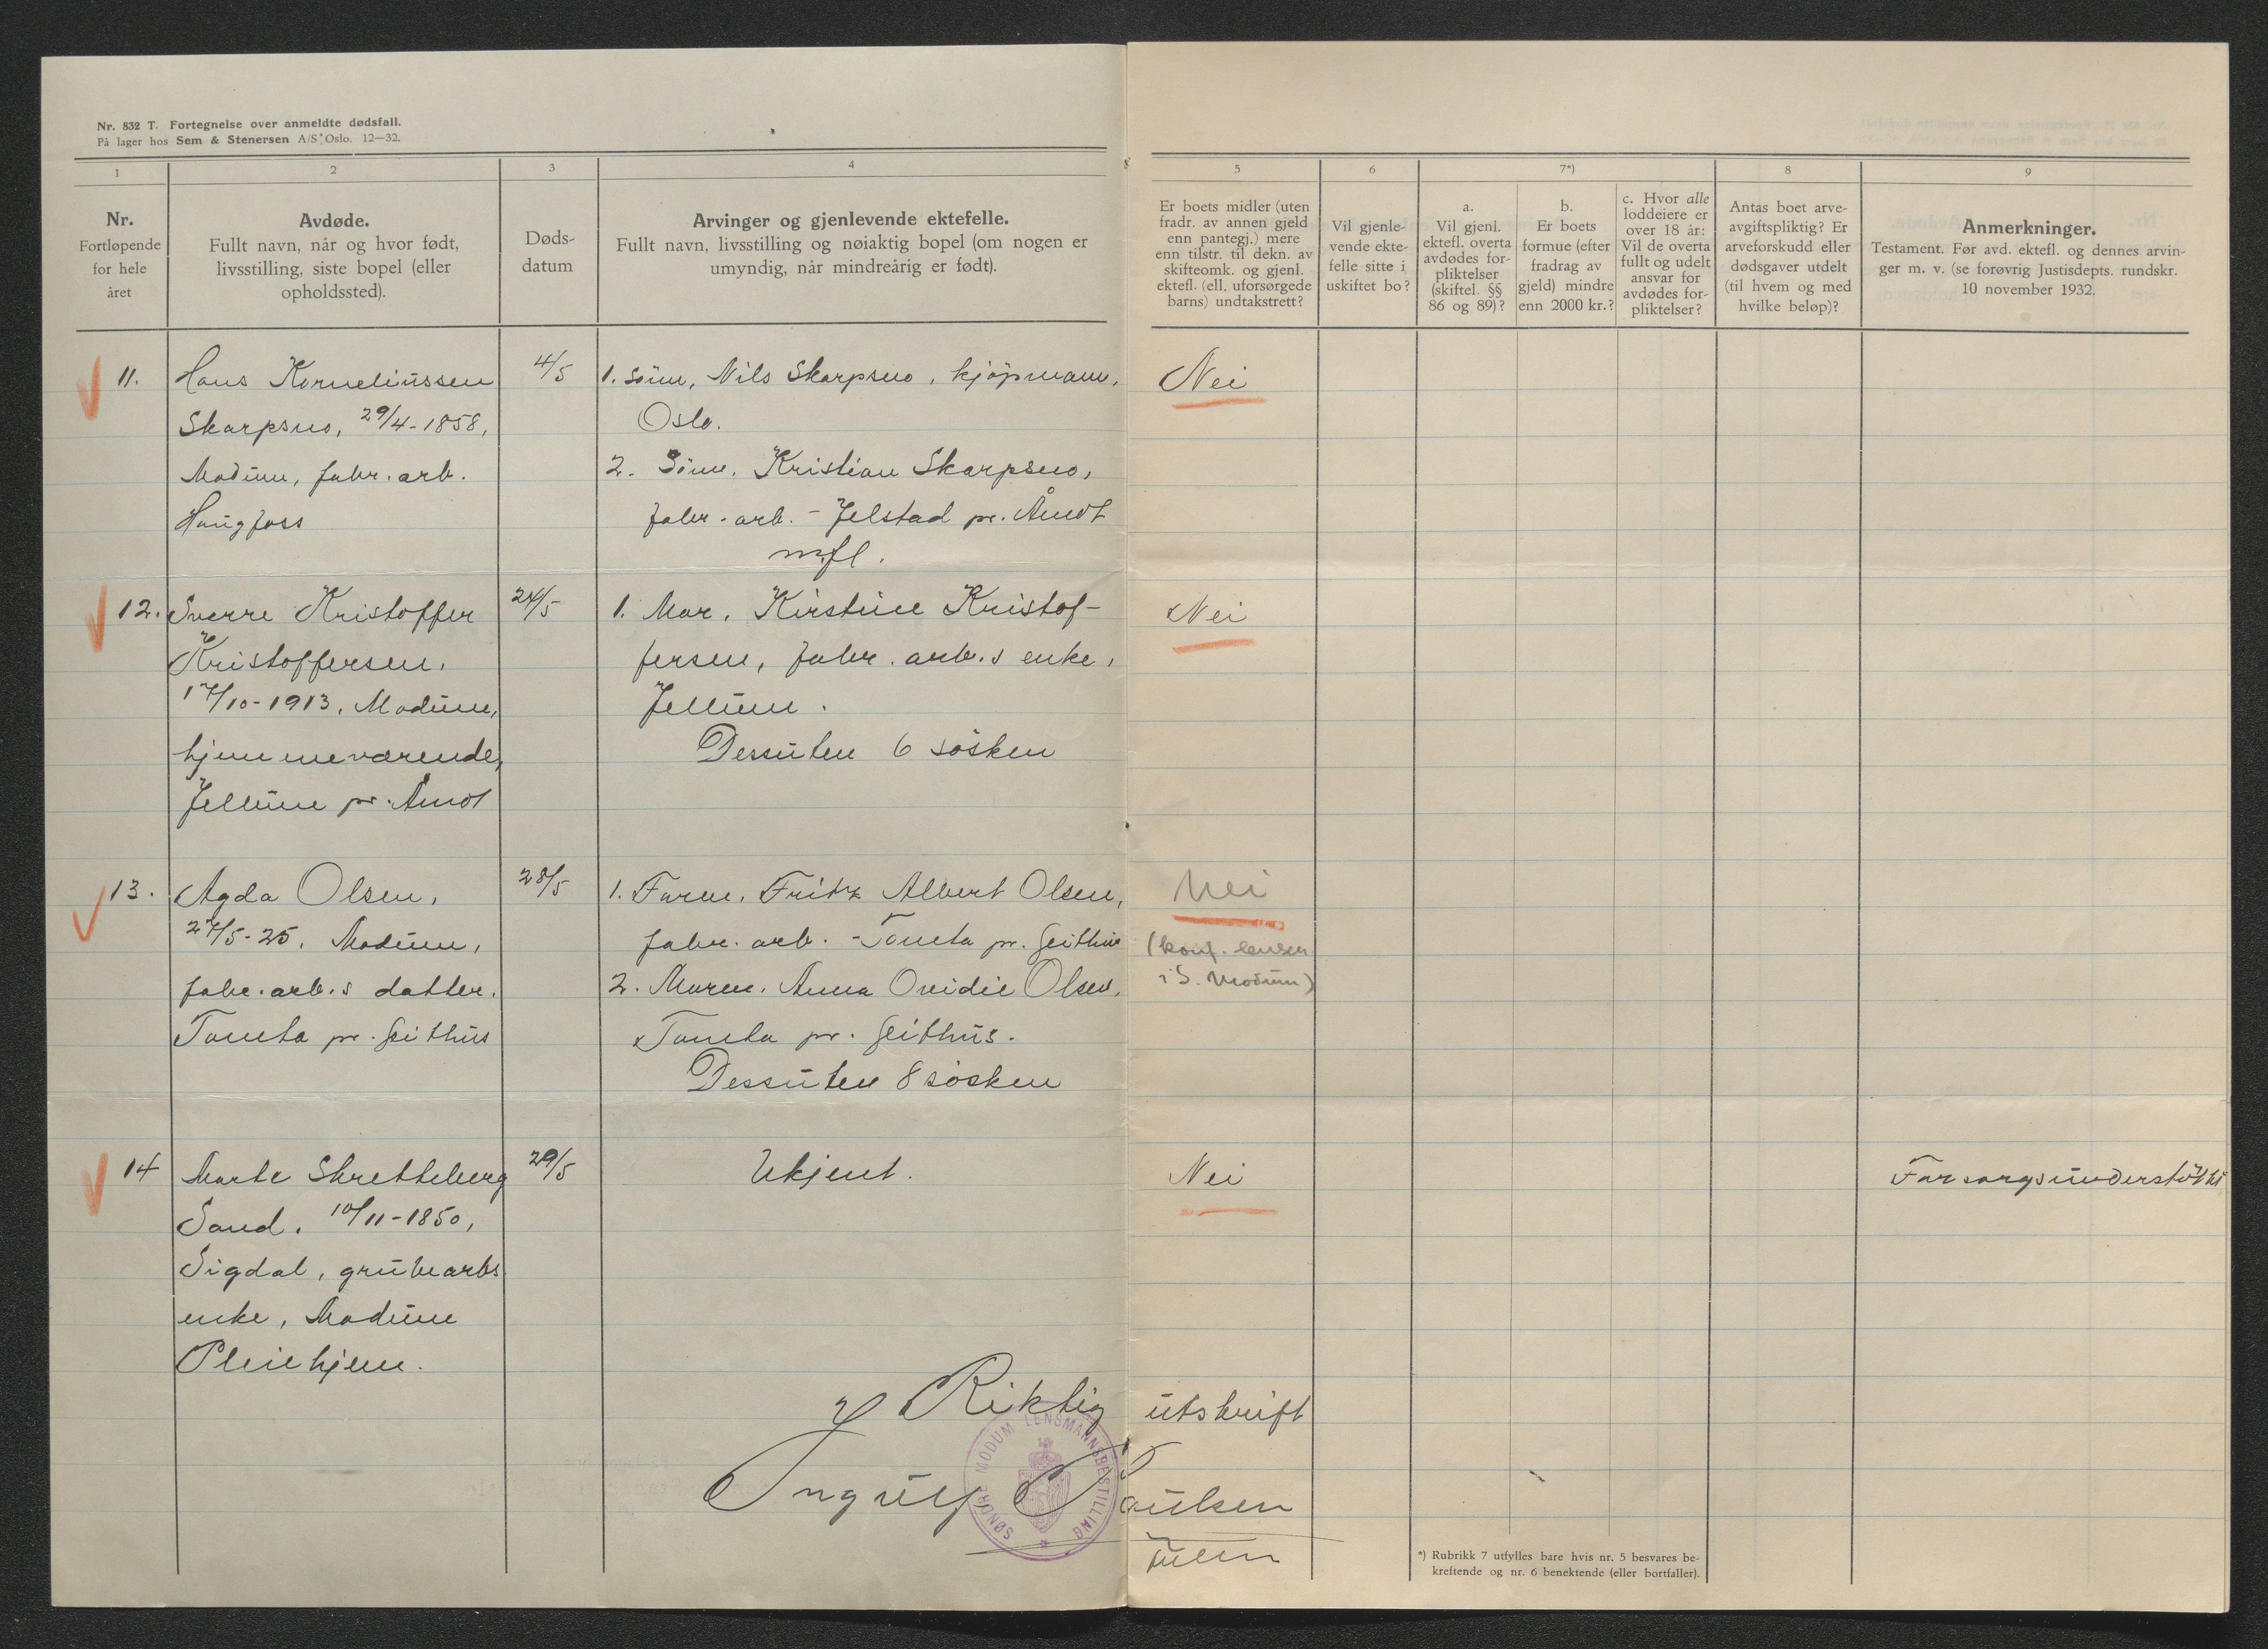 Nr. 832 T. Fortegnelse over anmeldte dødsfall.
På lager hos Sem & Stenersen A/S Oslo. 12—32.
1
2
3
4
Nr.
Fortløpende
for hele
året
Avdøde.
Fullt navn, når og hvor født,
livsstilling, siste bopel (eller
opholdssted).
Døds-
datum
Arvinger og gjenlevende ektefelle.
Fullt navn, livsstilling og nøiaktig bopel (om nogen er
umyndig, når mindreårig er født).
5
6
7*)
8
9
Er boets midler (uten
fradr. av annen gjeld
enn pantegj.) mere
enn tilstr. til dekn. av
skifteomk. og gjenl.
ektefl. (ell. uforsørgede
barns) undtakstrett?
Vil gjenle-
vende ekte-
felle sitte i
uskiftet bo?
a.
Vil gjenl.
ektefl. overta
avdødes for-
pliktelser
(skiftel. §§
86 og 89)?
b.
Er boets
formue (efter
fradrag av
gjeld) mindre
enn 2000 kr.?
c. Hvor alle
loddeiere er
over 18 år:
Vil de overta
fullt og udelt
ansvar for
avdødes for-
pliktelser?
Antas boet arve-
avgiftspliktig? Er
arveforskudd eller
dødsgaver utdelt
(til hvem og med
hvilke beløp)?
Anmerkninger.
Testament. Før avd. ektefl. og dennes arvin-
ger m. v. (se forøvrig Justisdepts. rundskr.
10 november 1932.
11.
Hans Korneliussen
Skarpsno, 29/4-1858,
Modum, fabr. arb.
Haugfoss
4/5
1. Sønn, Nils Skarpsno, kjøpmann,
Oslo.
2. Sønn, Kristian Skarpsno,
fabr. arb. - Jelstad pr. Åmot
m.fl.
Nei
12.
Sverre Kristoffer
Kristoffersen,
17/10-1913, Modum,
hjemmeværende,
Jellum pr. Åmot
24/5
1. Mor, Kirstine Kristof-
fersen, fabr. arb.s enke,
Jellum.
Dessuten 6 søsken
Nei
13.
Agda Olsen,
27/5-25, Modum,
fabr. arb.s datter,
Toneta pr. Geithus
28/5
1. Faren, Fritz Albert Olsen,
fabr. arb. - Toneta pr. Geithus
2. Moren, Anna Ovidie Olsen,
Toneta pr. Geithus.
Dessuten 8 søsken
Nei
(konf. lensm
i S. Modum)
14
Marte Skretteberg
Sand, 10/11-1850,
Sigdal, grubearbs
enke, Modum
Pleiehjem.
29/5
Ukjent.
Nei
Forsorgsunderstøttet
Riktig utskrift
Ingulf Paulsen
SØNDRE MODUM LENSMANNSBESTILLING
*) Rubrikk 7 utfylles bare hvis nr. 5 besvares be-
kreftende og nr. 6 benektende (eller bortfaller).